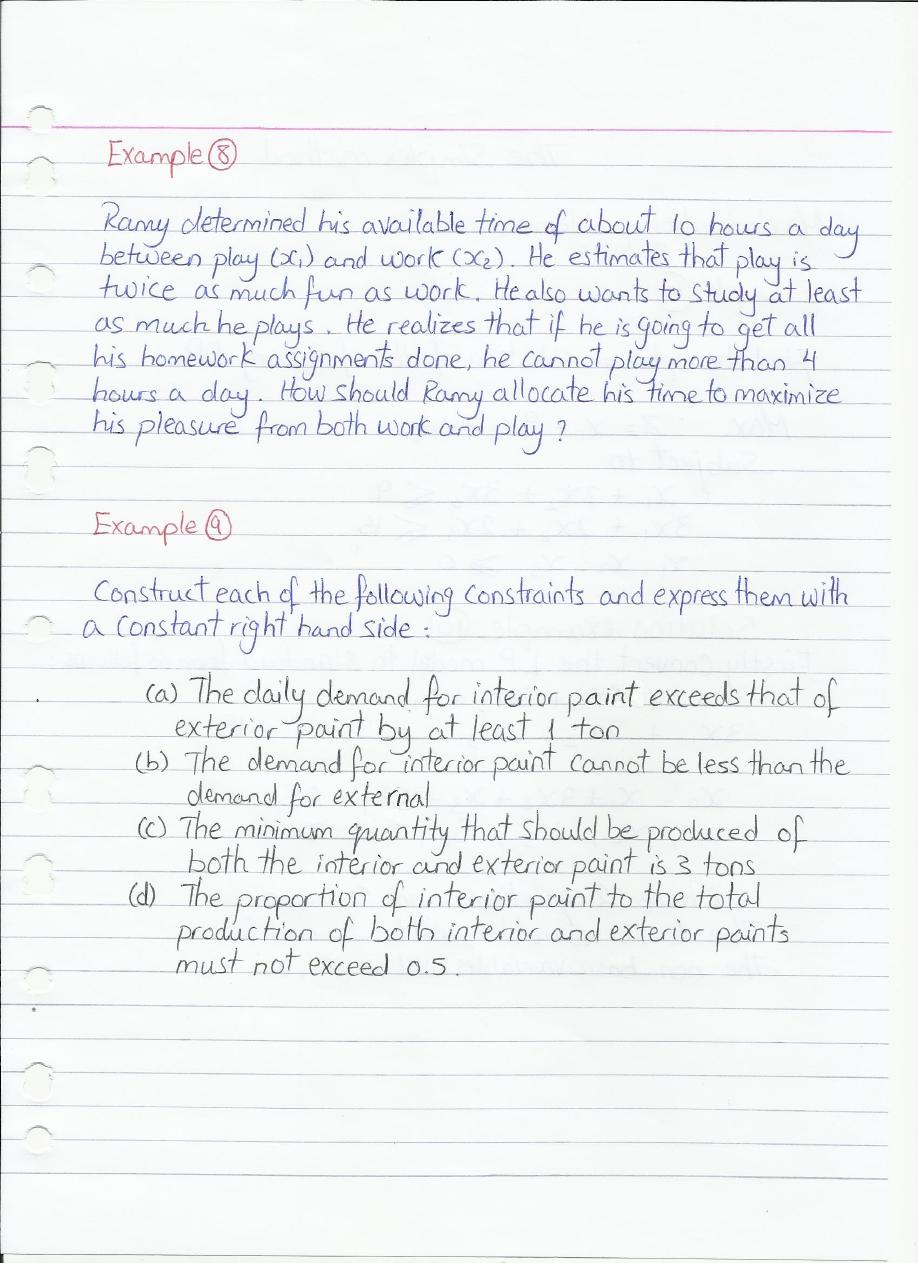 Example ⑧
Ramy determined his available time of about 10 hours a day
between play (x₁) and work (x₂). He estimates that play is
twice as much fun as work. He also wants to study at least
as much he plays. He realizes that if he is going to get all
his homework assignments done, he cannot play more than 4
hours a day. How should Ramy allocate his time to maximize
his pleasure from both work and play?
Example ⑨
Construct each of the following constraints and express them with
a constant right hand side:
(a) The daily demand for interior paint exceeds that of
exterior paint by at least 1 ton
(b) The demand for interior paint cannot be less than the
demand for external
(c) The minimum quantity that should be produced of
both the interior and exterior paint is 3 tons
(d) The proportion of interior paint to the total
production of both interior and exterior paints
must not exceed 0.5.